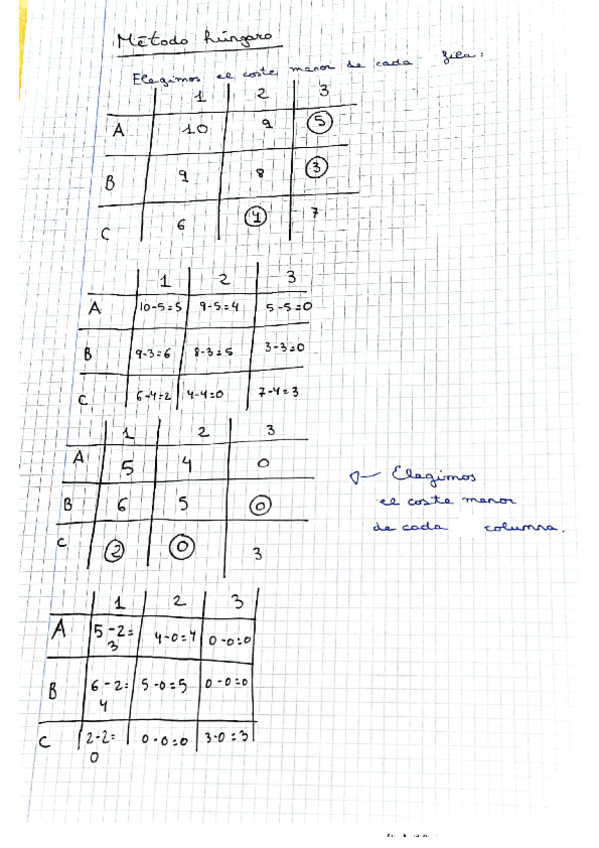 Método húngaro
Elegimos el coste menor de cada fila:
1 2 3
A 10 9 5
B 9 8 3
C 6 4 7
1 2 3
A 10-5=5 9-5=4 5-5=0
B 9-3=6 8-3=5 3-3=0
C 6-4=2 4-4=0 7-4=3
1 2 3
A 5 4 0
B 6 5 0
C 2 0 3
Elegimos
el coste menor
de cada columna.
1 2 3
A 5-2=3 4-0=4 0-0=0
B 6-2=4 5-0=5 0-0=0
C 2-2=0 0-0=0 3-0=3